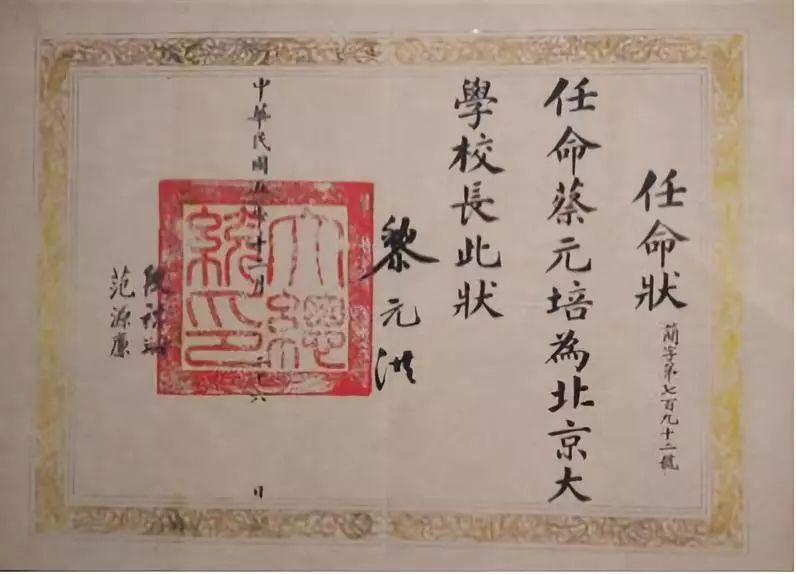 任命狀
簡字第七百九十二號
任命蔡元培為北京大
學校長此狀
黎元洪
大總統印
中華民國五年十二月二十六日
段祺瑞
范源廉